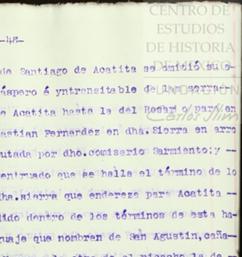 CENTRO DE
ESTUDIOS
DE HISTORIA
DE MÉXICO
Carlos Slim
-48-
de Santiago de Acatita se omitió su
áspero é yntransitable de las
de Acatita hasta la del Rosario para en
bastian Fernandez en dha. Sierra en arro
utada por dho. comisario Sarmiento; y --
entruado que se halla el término de lo
dha. sierra que endereza para Acatita --
dido dentro de los términos de esta ha-
guaje que nombran de San Agustin, caña-